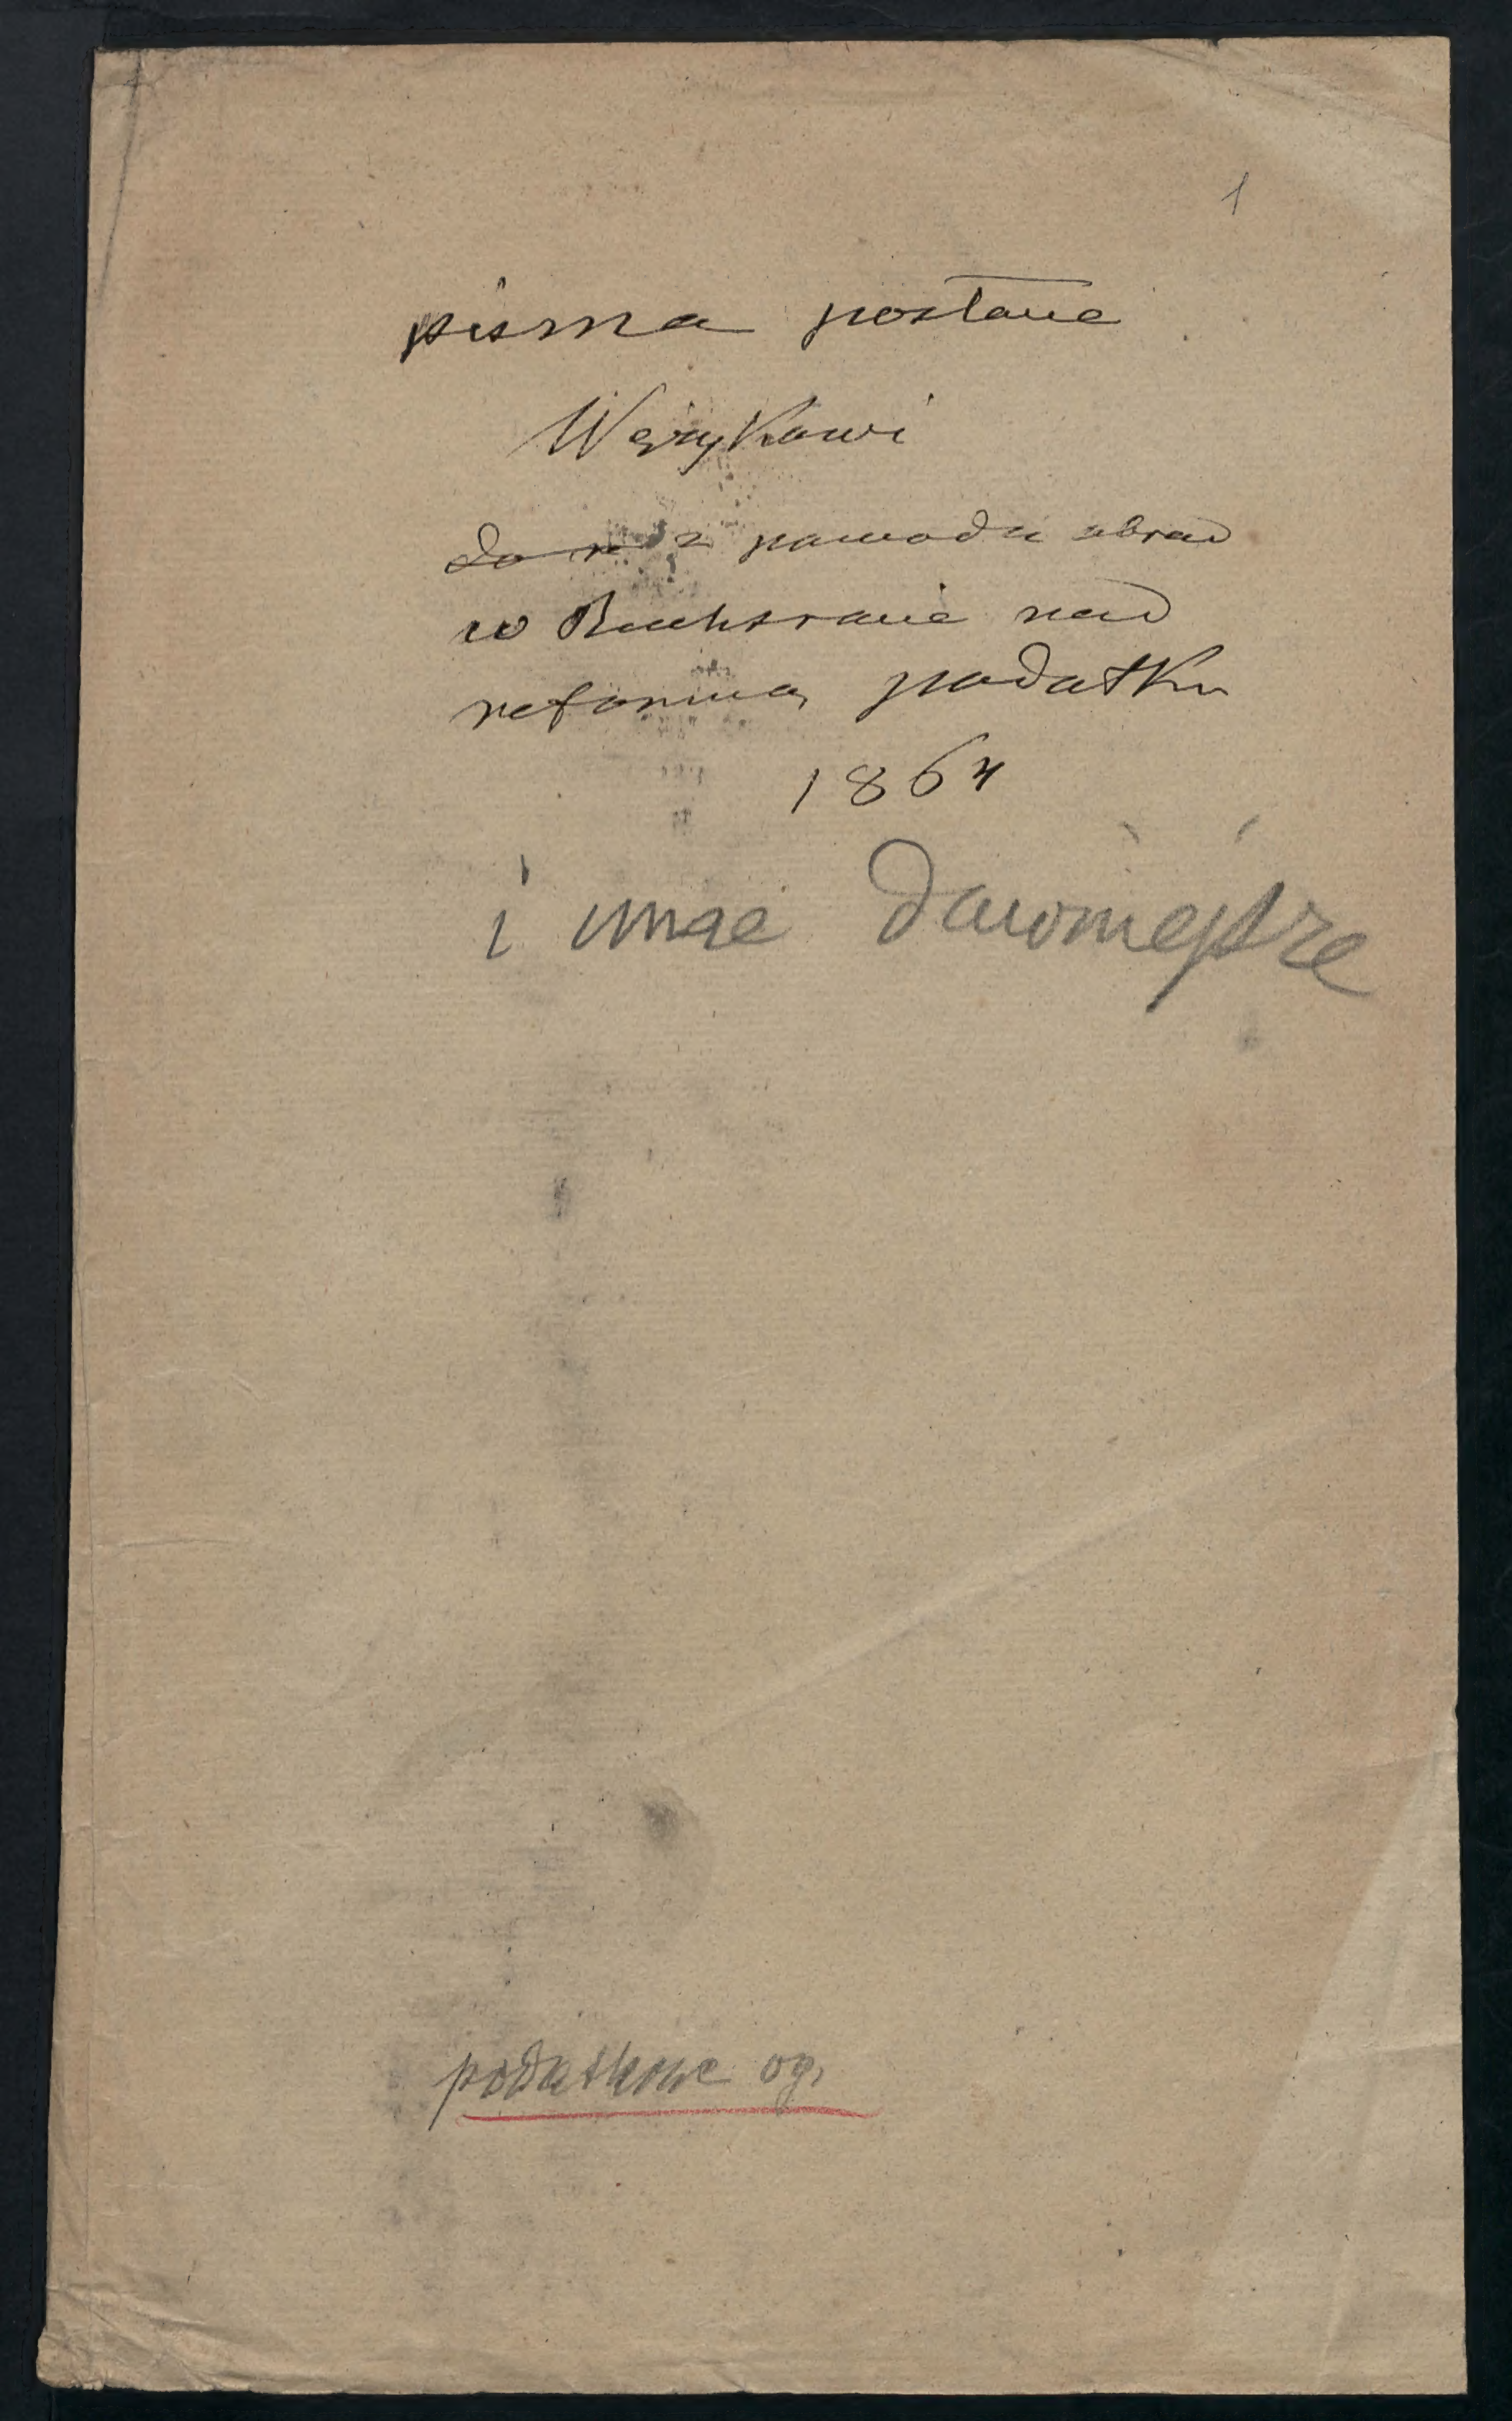 1
pisma posłane
Wężykowi
do r z powodu obrad
w Reichsracie nad
reformą podatku
1864
i inne dawniejsze
podatkowe og.